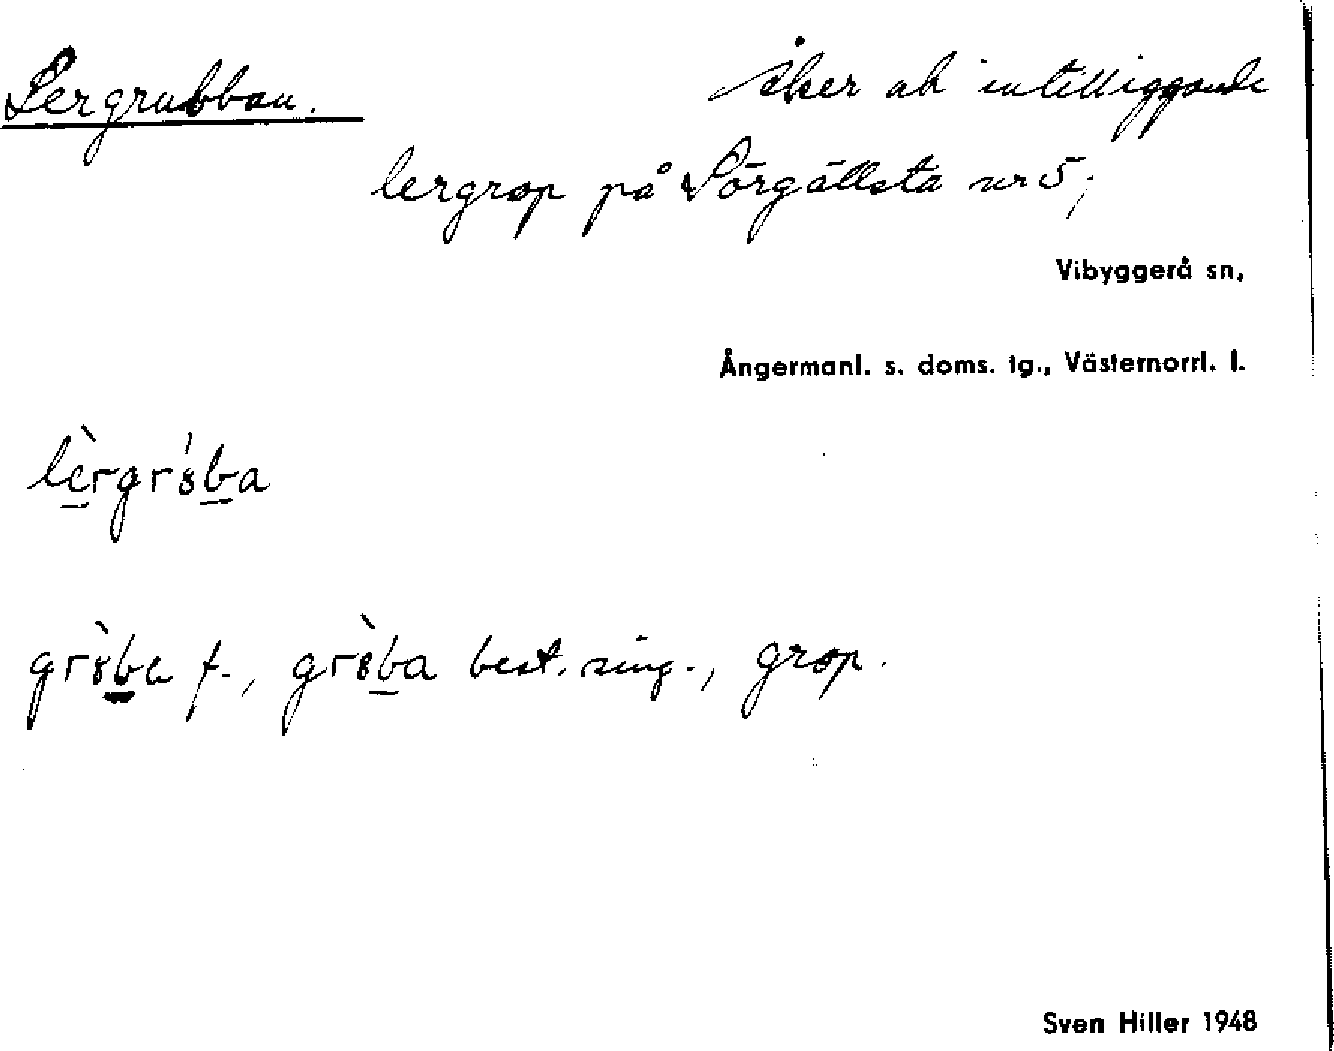 Lergrubban. Åker ok intilliggande
lergrop på Sörgällsta nr 5;
Vibyggerå sn,
Ångermanl. s. doms. tg., Västernorrl. l.
lèrgr8́ba
gr8̀ba f., gr8̀ba best. sing., grop.
Sven Hiller 1948